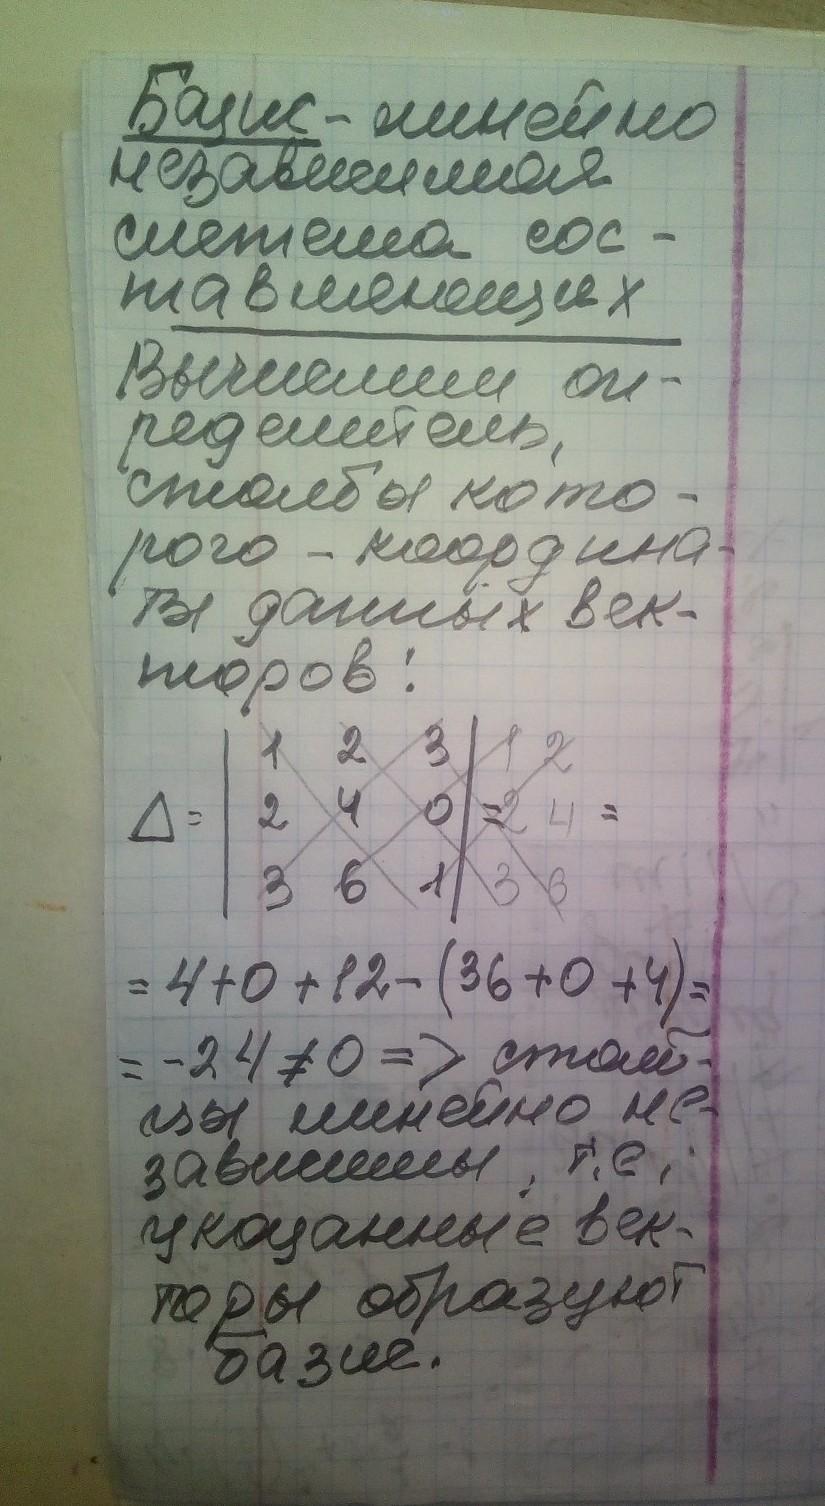 Базис - линейно
независимая
система сос-
тавляющих
Вычислим оп-
ределитель,
столбы кото-
рого - координа-
ты данных век-
торов:
1 2 3 1 2
Δ = 2 4 0 = 2 4 =
3 6 1 3 6
= 4+0+12-(36+0+4)=
= -24≠0 => столб-
цы линейно не-
зависимы, т.е.
указанные век-
торы образуют
базис.